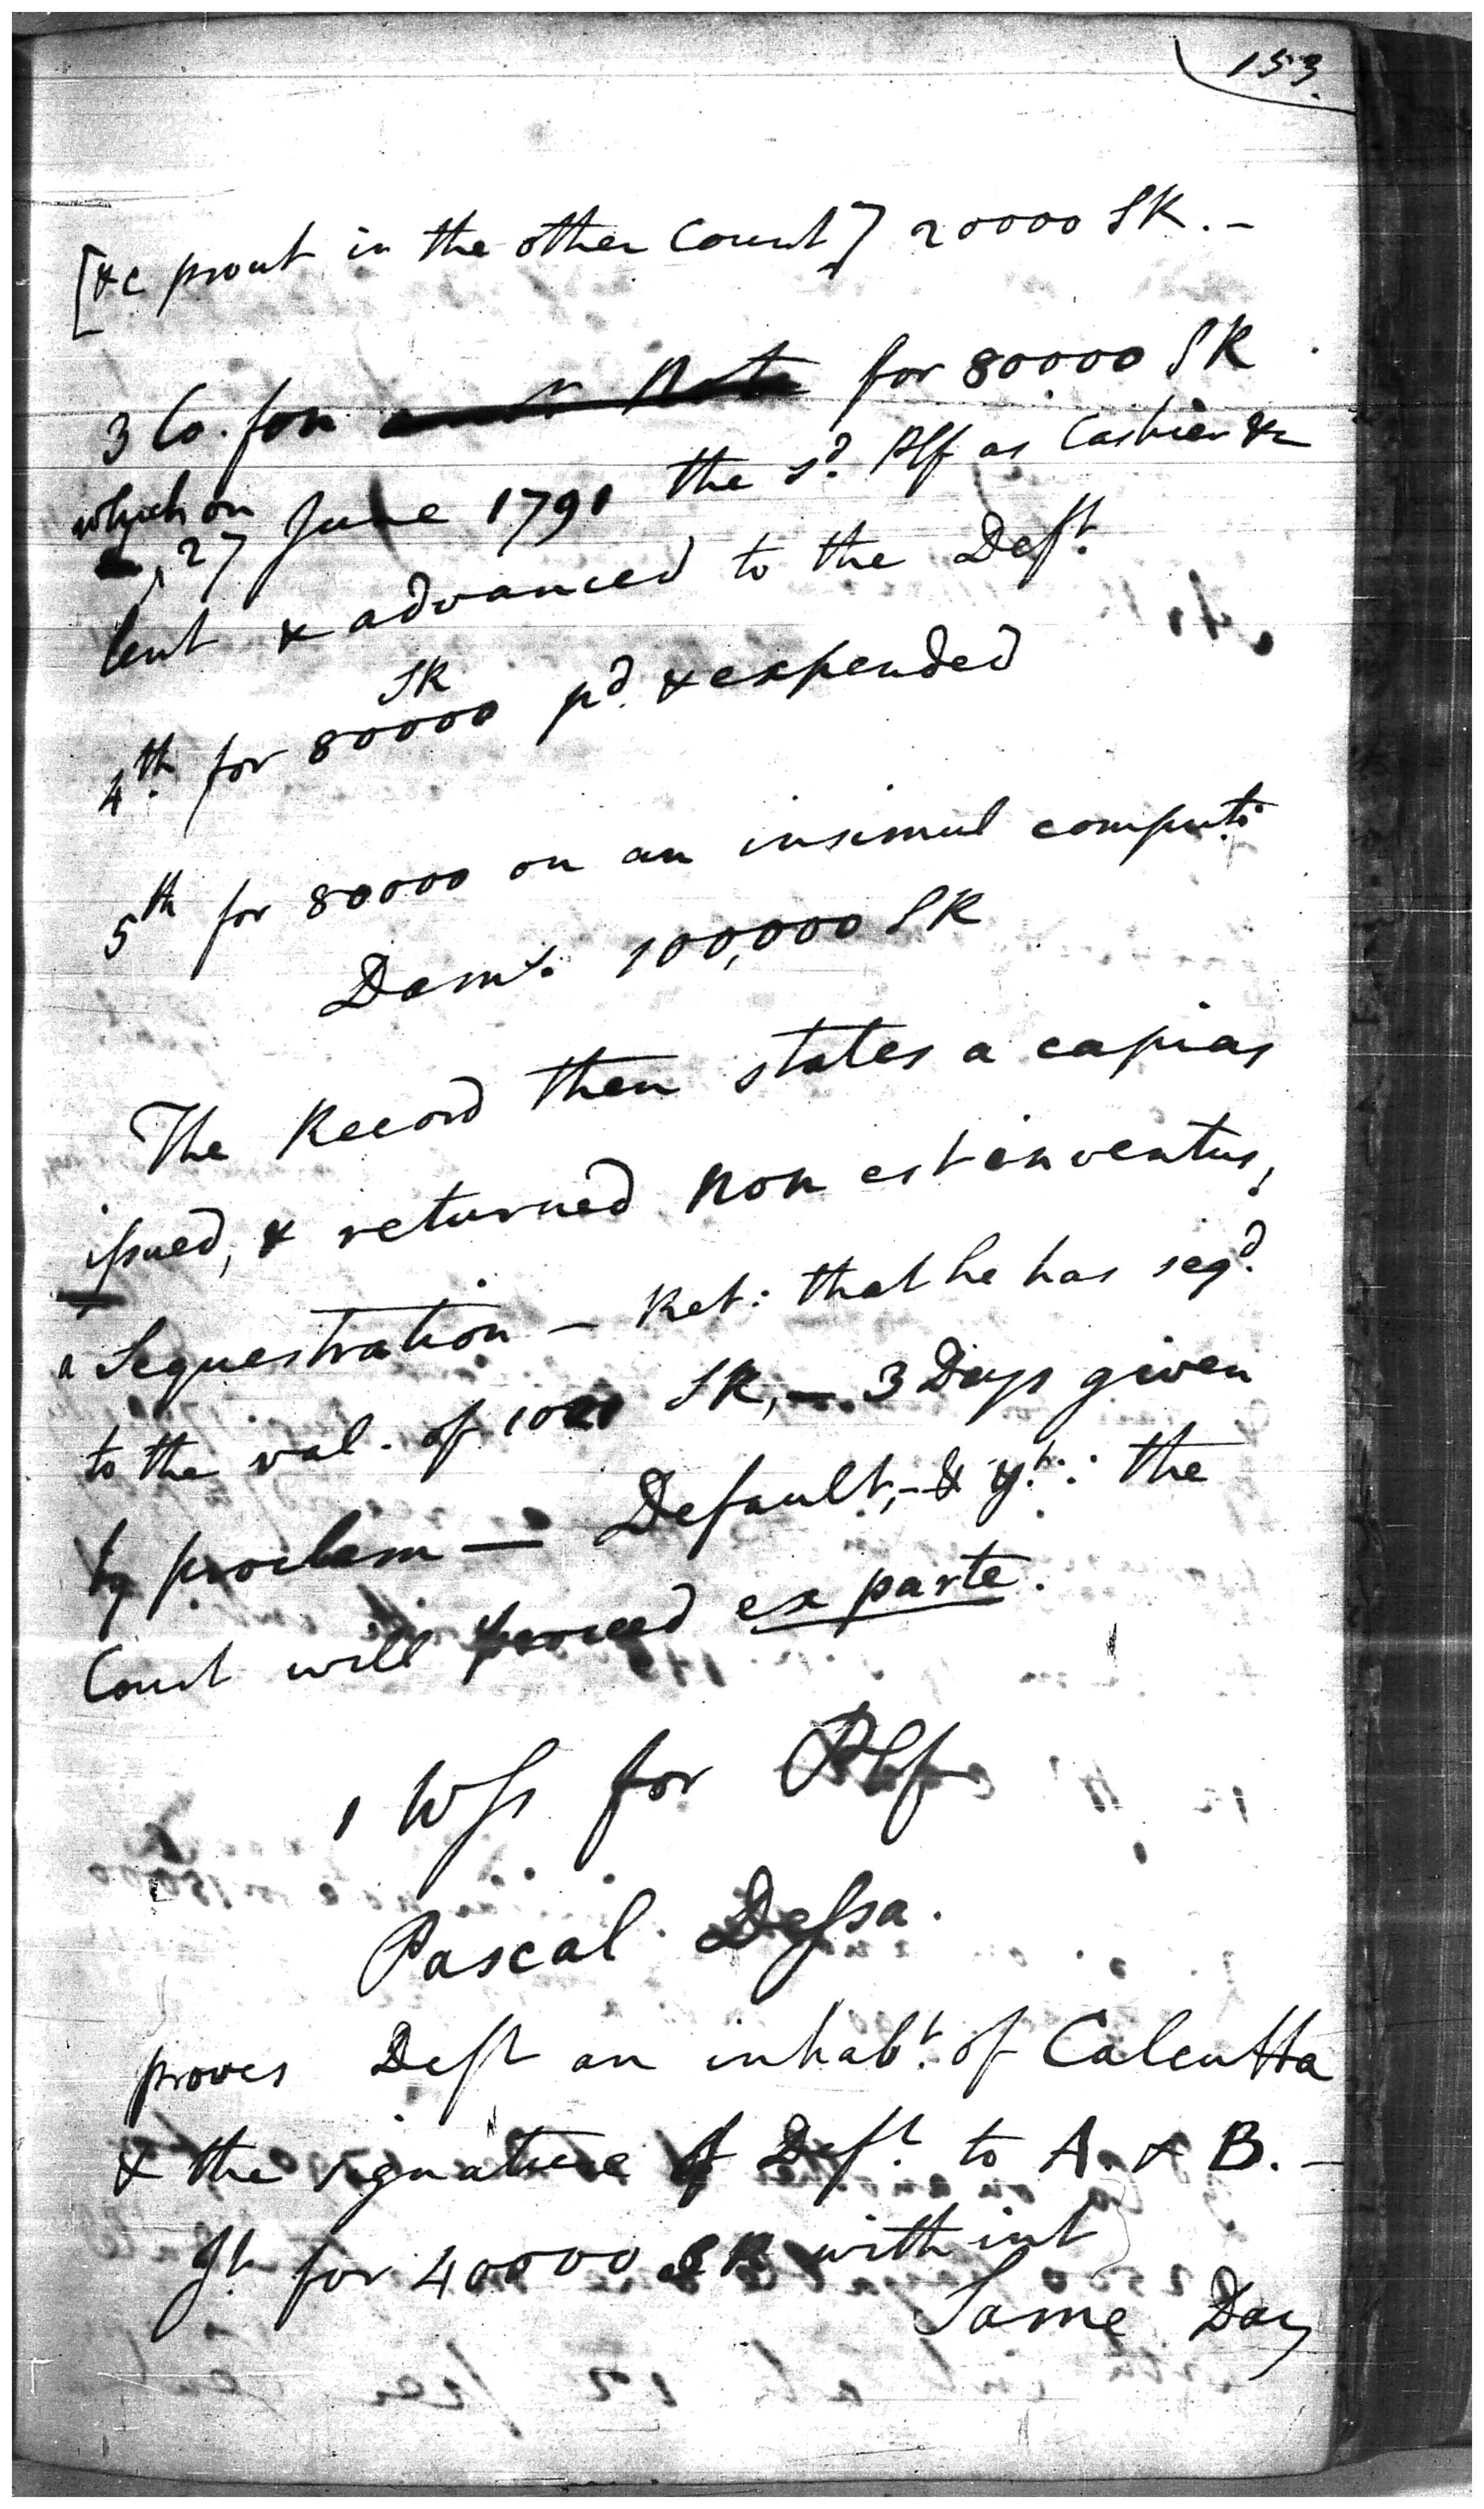 153.
[&c prout in the other Count] 20000 SR. -
3 Co. for for 80000 SR
which on
27 June 1791 the sd. Plf as Cashier &c
lent & advanced to the Deft.
SR
4th. for 80000 pd. & expended
5th for 80000 on an insimul computt:
Dams. 100,000 SR
The Record then states a capias
issued, & returned non est inventus,
a Sequestration — Ret: that he has seqd.
to the val. of SR, — 3 Days given
by proclam — Default, - & yt.: the
Court will proceed ex parte.
1 Wss for Plf
Pascal Dessa.
proves Deft an inhabt. of Calcutta
& the signature of Deft. to A. & B. -
Jt. for 40000 SR with int
Same Day